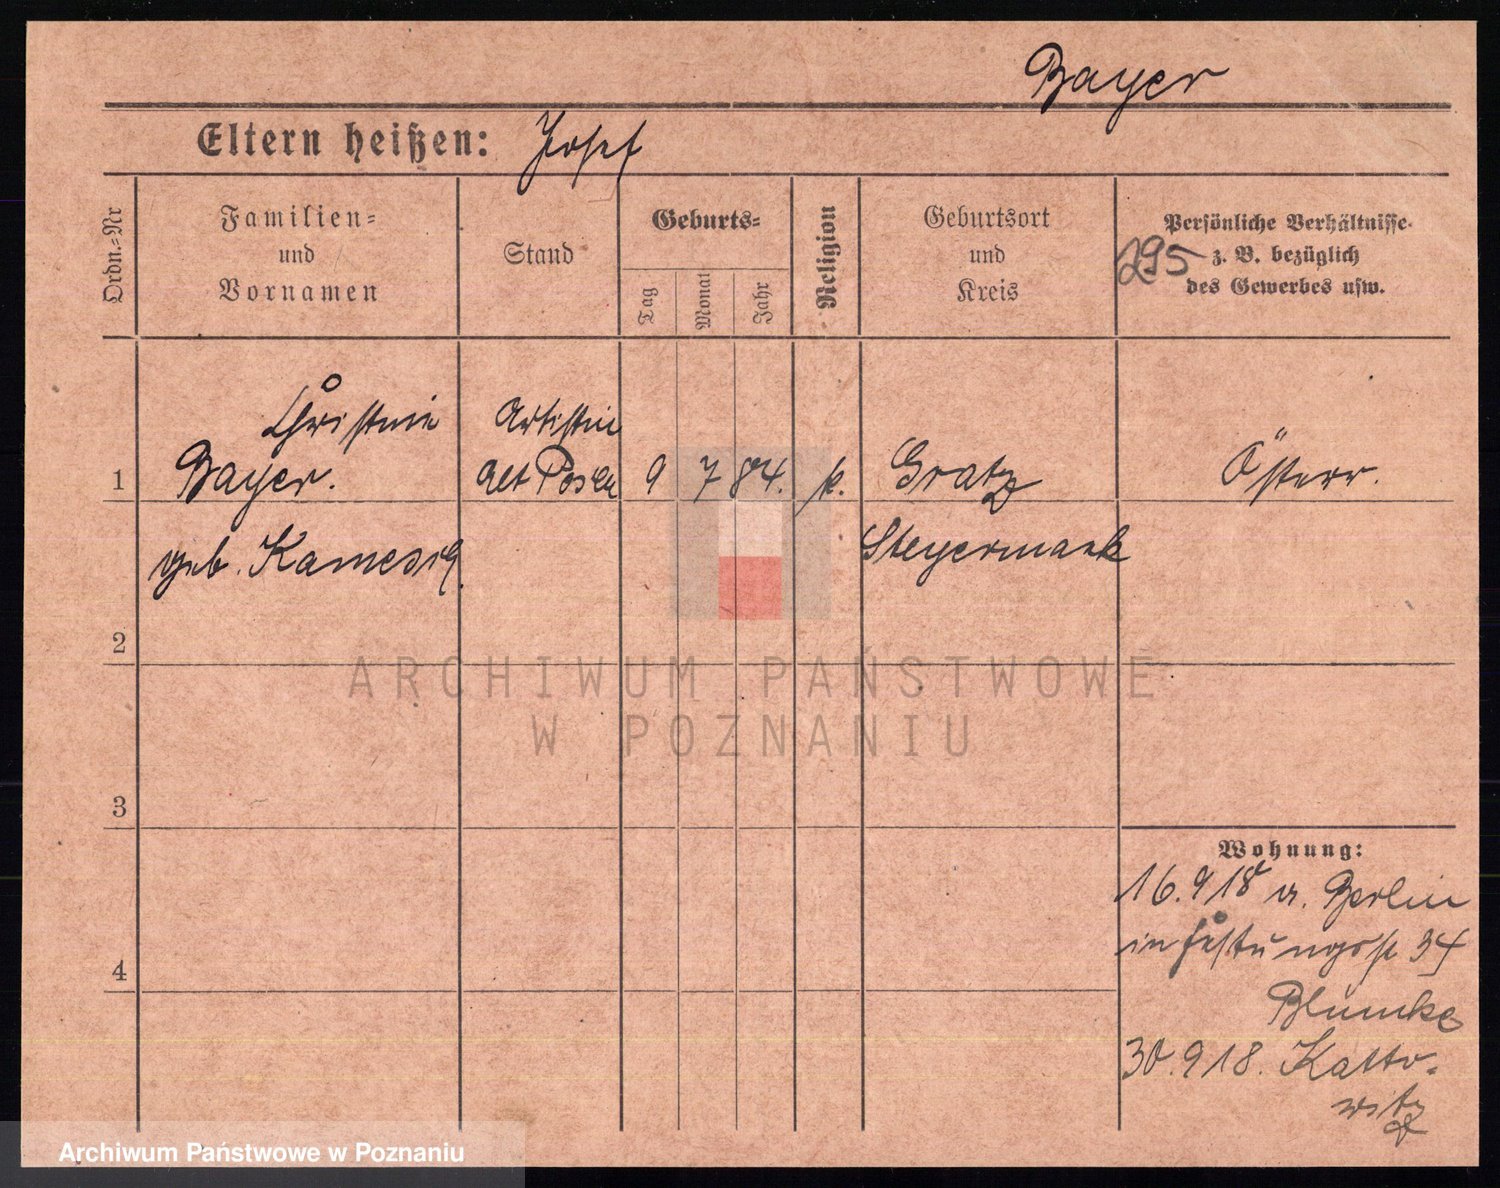 Bayer
Eltern heißen: Josef
Ordn.-Nr
Familien-
und
Vornamen
Stand
Geburts-
Tag
Monat
Jahr
Religion
Geburtsort
und
Kreis
Persönliche Verhältnisse
z. B. bezüglich
des Gewerbes usw.
295
Christine Artistin
1 Bayer. Alt Posen 9 7 84. k. Gratz Österr.
geb. Steyermark
2
3
4
Wohnung:
16.9 18 v. Berlin
in Festungsst 34
Blümke
30.9 18. Katto-
witz
ARCHIWUM PAŃSTWOWE
W POZNANIU
Archiwum Państwowe w Poznaniu